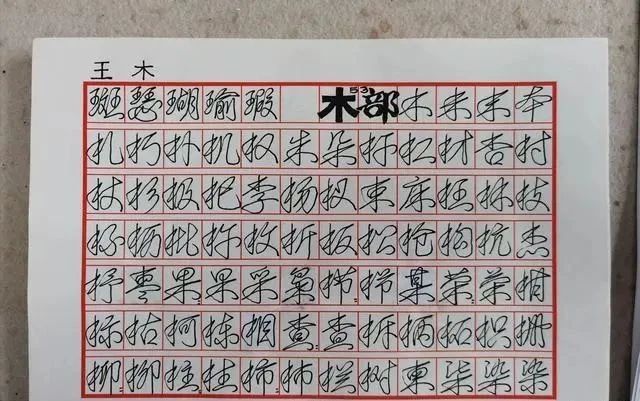 王 木
斑 瑟 瑚 瑜 瑕 木部 53 木 未 末 本
札 朽 朴 机 权 朱 朵 杆 杠 材 杏 村
杖 杉 极 把 李 杨 杈 束 床 枉 林 枝
杯 柄 批 板 松 枪 构 杭 杰
杼 枣 果 果 采 枭 栉 栉 某 荣 荣 柑
标 枯 柯 栋 相 查 查 柝 柄 柘 枳 栅
柳 柳 柱 柿 柿 栏 树 柬 柒 染 染